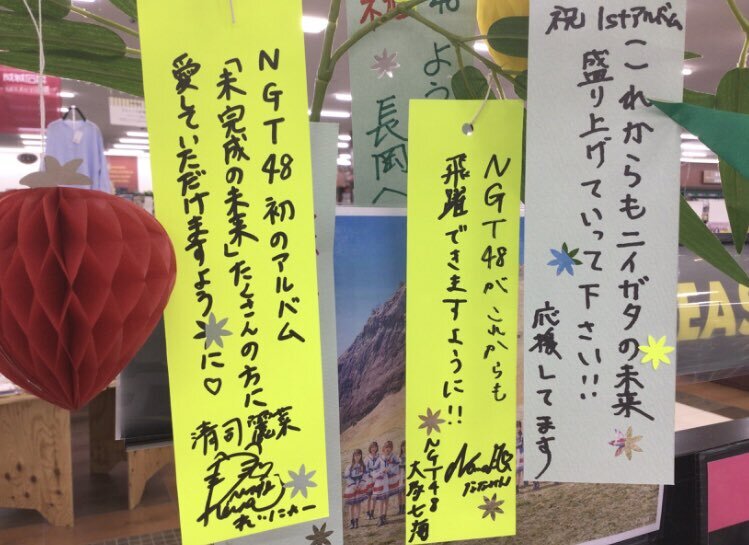 NGT48 初のアルバム
「未完成の未来」たくさんの方に
愛していただけますように♡
清司麗菜
れいにゃー
よう
長岡へ
NGT48が これからも
飛躍できますように!!
NGT48
大塚七海
祝 1stアルバム
これからもニイガタの未来
盛り上げていって下さい!!
応援してます
EAS